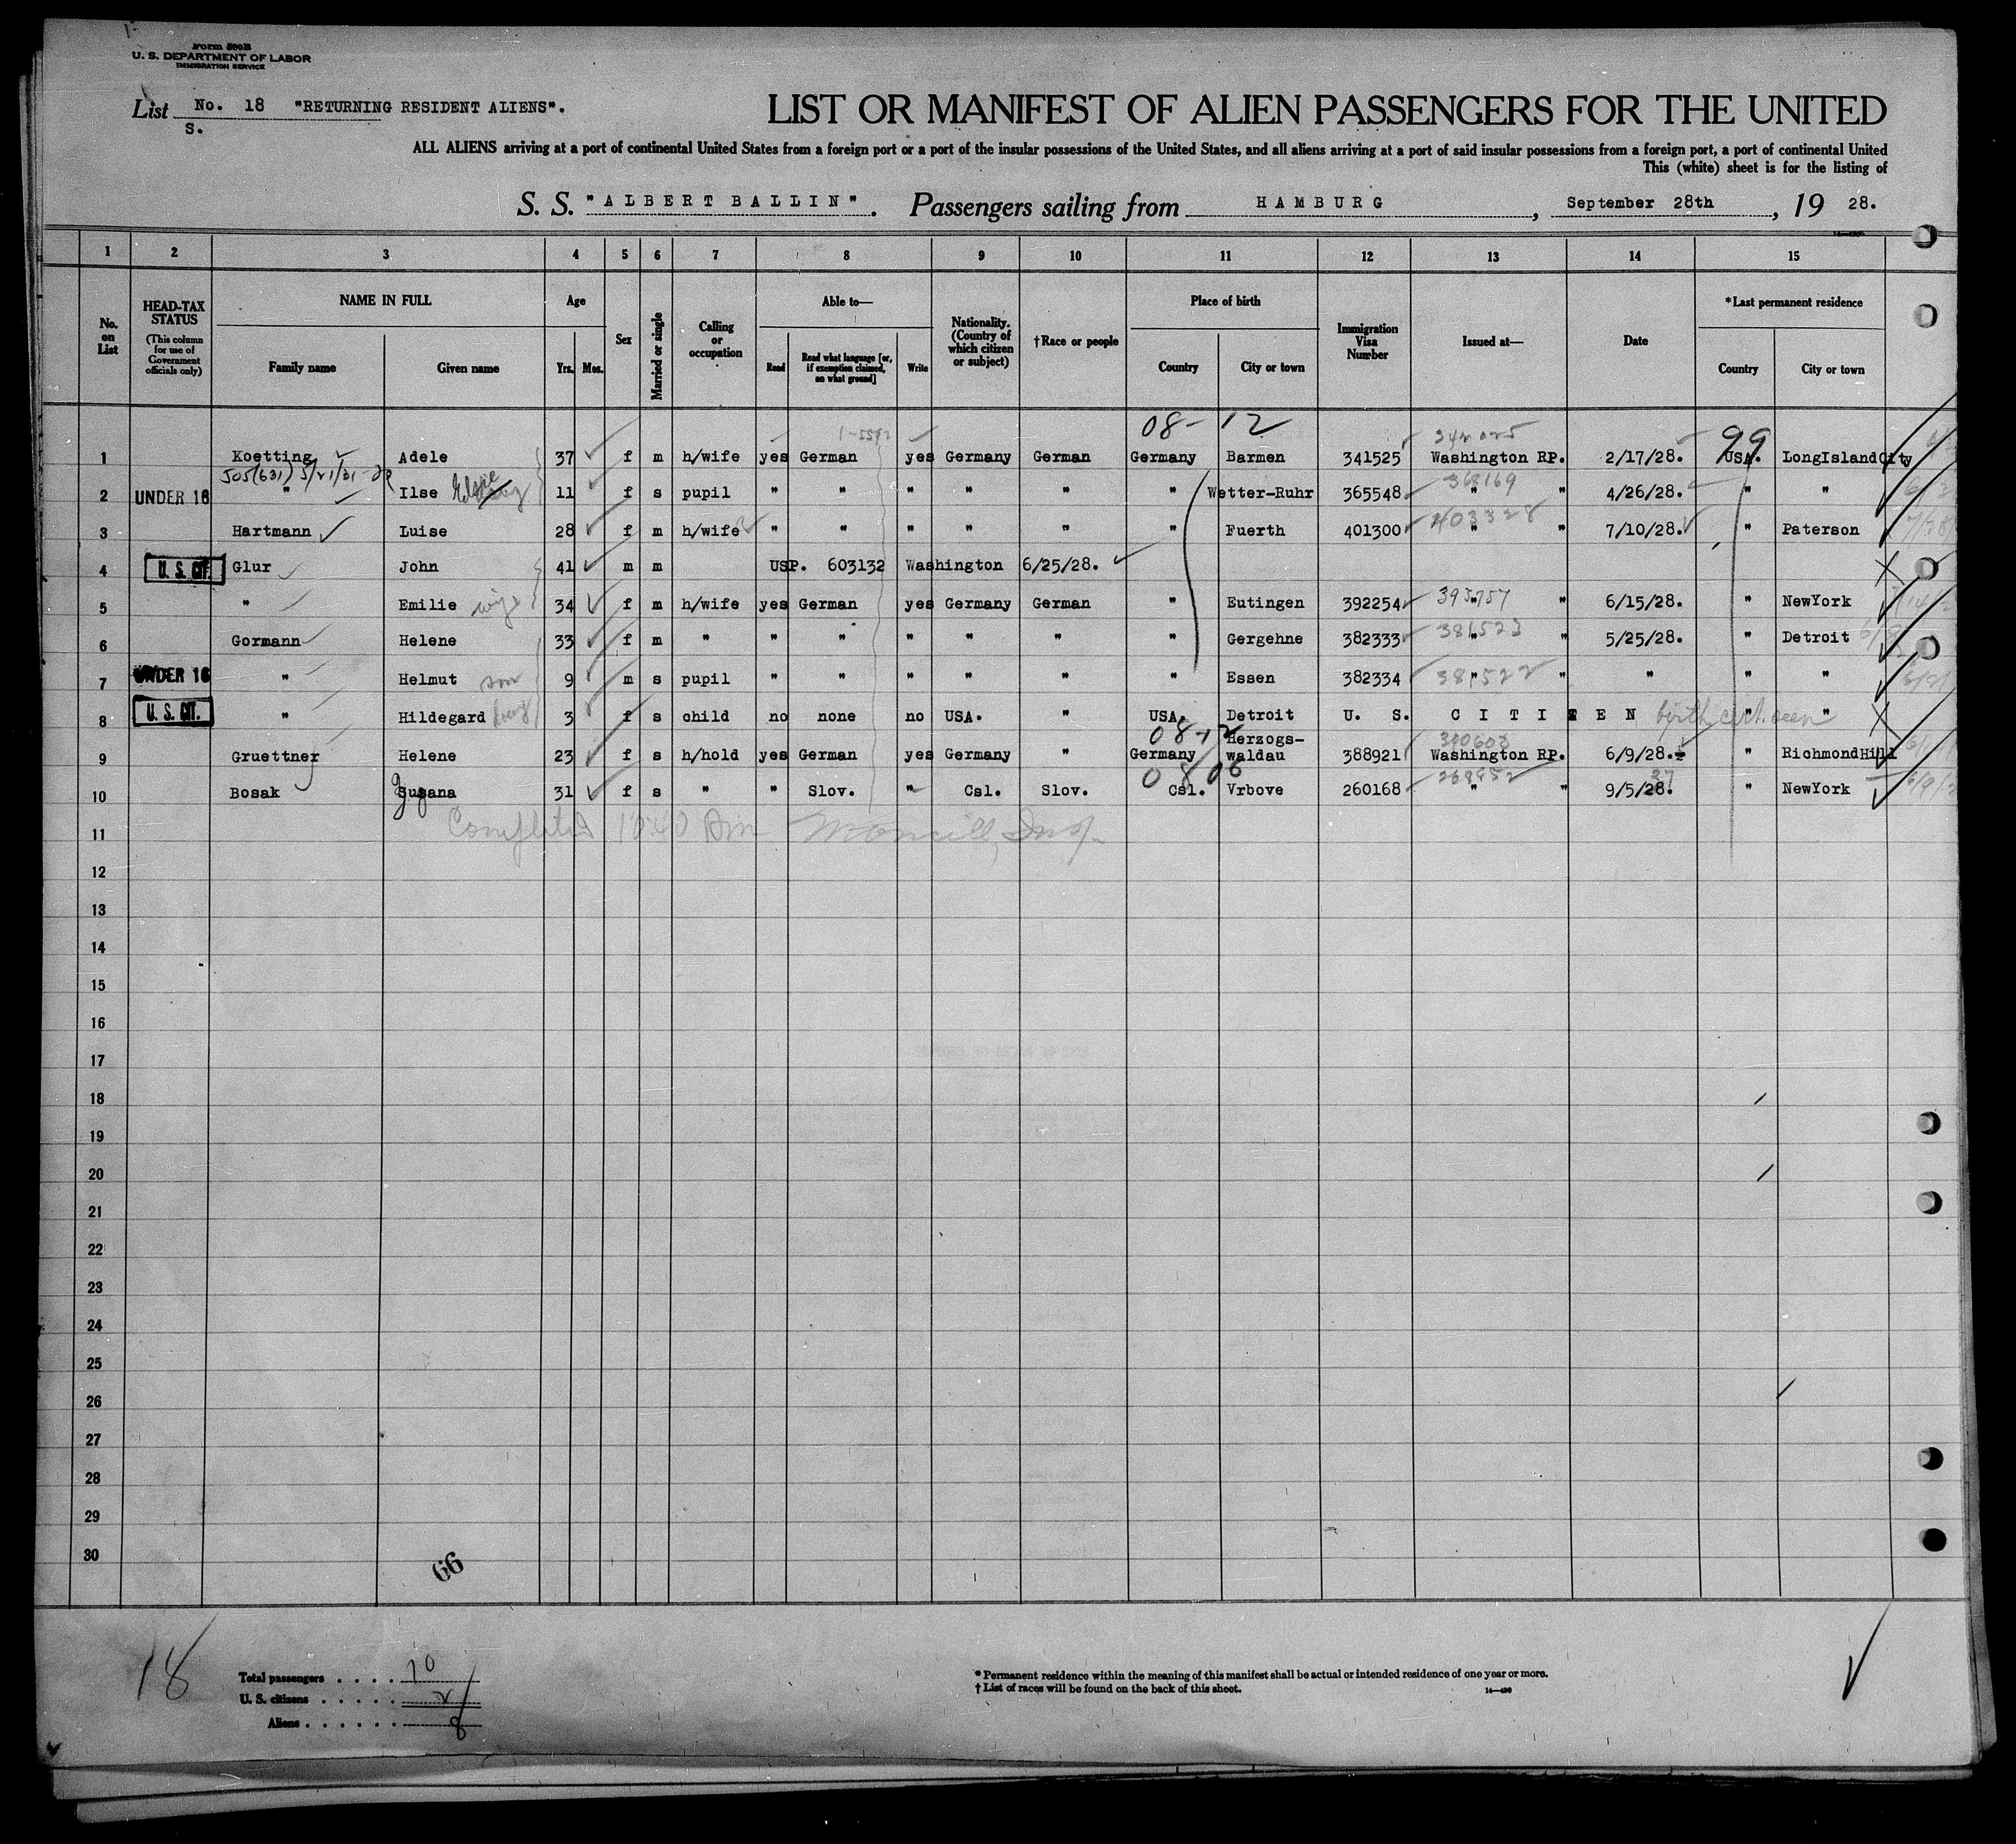 Form 500B
U. S. DEPARTMENT OF LABOR
IMMIGRATION SERVICE
List No. 18 "RETURNING RESIDENT ALIENS".
S.
LIST OR MANIFEST OF ALIEN PASSENGERS FOR THE UNITED
ALL ALIENS arriving at a port of continental United States from a foreign port or a port of the insular possessions of the United States, and all aliens arriving at a port of said insular possessions from a foreign port, a port of continental United
This (white) sheet is for the listing of
S. S. "ALBERT BALLIN". Passengers sailing from HAMBURG, September 28th, 19 28.
1 2 3 4 5 6 7 8 9 10 11 12 13 14 15
No. on List
HEAD-TAX STATUS
(This column for use of Government officials only)
NAME IN FULL
Family name Given name
Age
Yrs. Mos.
Sex
Married or single
Calling or occupation
Able to—
Read Read what language [or, if exemption claimed, on what ground] Write
Nationality. (Country of which citizen or subject)
†Race or people
Place of birth
Country City or town
Immigration Visa Number
Issued at—
Date
*Last permanent residence
Country City or town
08-12 99
1 Koetting Adele 37 f m h/wife yes German yes Germany German Germany Barmen 341525 Washington RP. 2/17/28. USA. LongIslandCity
505(631) 5/21/31
2 UNDER 16 " Ilse Elsie 11 f s pupil " " " " " " Wetter-Ruhr 365548 363169 " " 4/26/28. " "
3 Hartmann Luise 28 f m h/wife " " " " " " Fuerth 401300 403328 " " 7/10/28. " Paterson
4 U. S. CIT. Glur John 41 m m USP. 603132 Washington 6/25/28.
5 " Emilie wife 34 f m h/wife yes German yes Germany German " Eutingen 392254 393757 " " 6/15/28. " NewYork
6 Gormann Helene 33 f m " " " " " " " Gergehne 382333 381523 " " 5/25/28. " Detroit
7 UNDER 16 " Helmut son 9 m s pupil " " " " " " Essen 382334 381522 " " " " "
8 U. S. CIT. " Hildegard 3 f s child no none no USA. " USA. Detroit U. S. CITIZEN birth cert. seen " "
08-12
9 Gruettner Helene 23 f s h/hold yes German yes Germany " Germany Herzogs-waldau 388921 390603 Washington RP. 6/9/28. " RichmondHill
08 06
10 Bosak Susana 31 f s " " Slov. " Csl. Slov. Csl. Vrbove 260168 268852 " " 9/5/28. 27 " NewYork
11 Completed 10:40 Am
12
13
14
15
16
17
18
19
20
21
22
23
24
25
26
27
28
29
30
66
18
Total passengers . . . . 10
U. S. citizens . . . . . 2
Aliens . . . . . . 8
* Permanent residence within the meaning of this manifest shall be actual or intended residence of one year or more.
† List of races will be found on the back of this sheet.